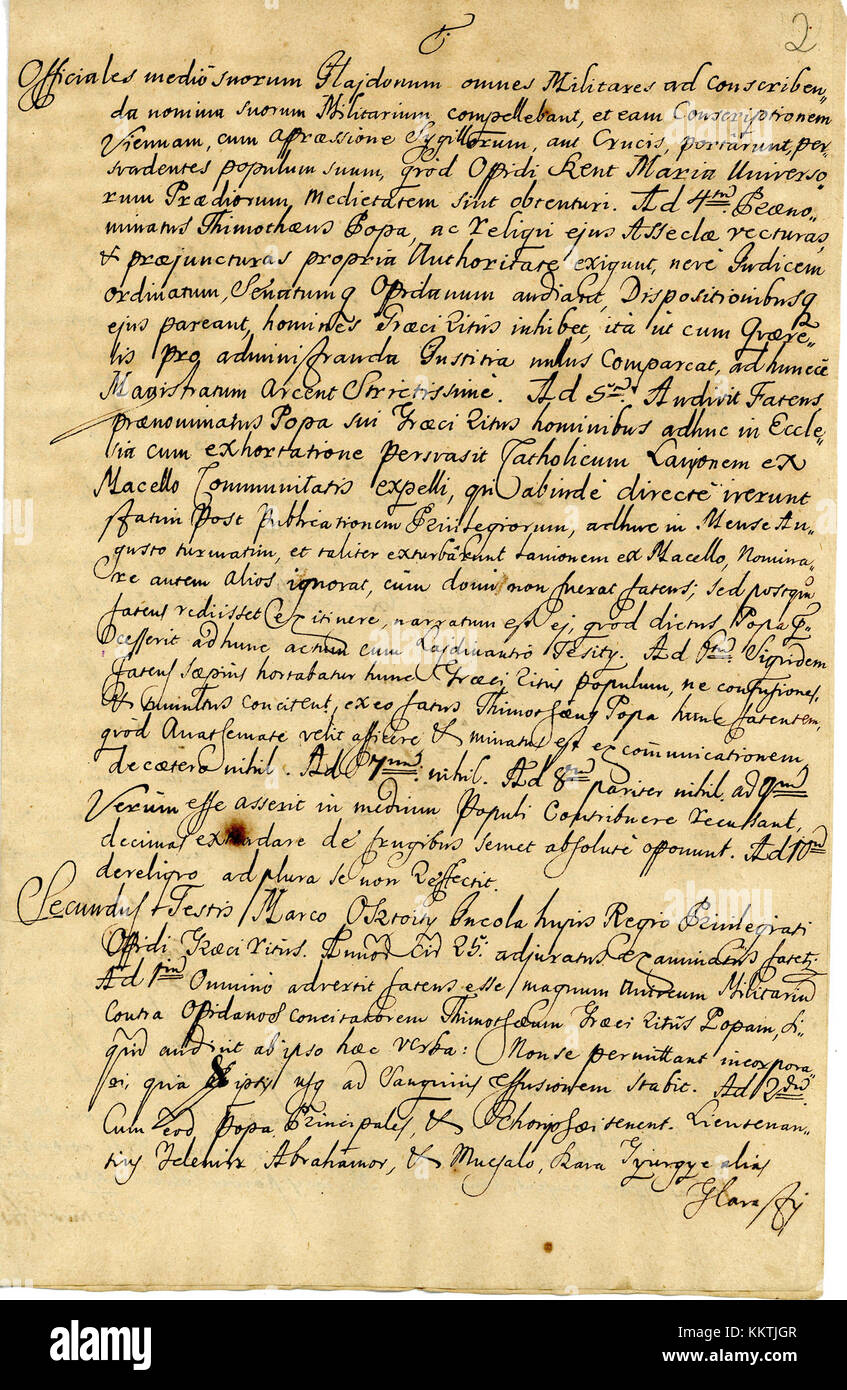 2
Officiales mediõ suorum Hajdonum omnes Militares ad conscriben„
da nomina suorum Militarium compellebant, et eam Conscriptionem
Viennam, cum apræssione Sygillorum, aut Crucis, portárunt, per„
svadentes populum suum, qvòd Opidi Szent Maria Universo„
rum Prædiorum, medietatem sint obtenturi. Ad 4tũ. Præno„
minatus Thimothæus Popa, ac religvi ejus Asseclæ recturas,
& præjuncturas propria Authoritate exigunt, nevè Judicem
ordinatum, Senatumq Opidanum audiant, Dispositionibusq
ejus pareant, homines Græci Ritûs inhibet, ità ut cum Qvære„
lis pro administranda Justitia nullus compareat, ad hunccè
Magistratum arcent Strictissimè. Ad 5tũ. Audivit Fatens
prænominatus Popa sui Græci Ritûs hominibus adhuc in Eccle„
sia cum exhortatione persvasit Catholicum Lanionem ex
Macello Communitatis expelli, qvi abindè directè iverunt
statim Post publicationem Privilegiorum, adhuc in Mense Au„
gusto turmatim, et taliter exturbârunt Lanionem ex Macello, Nomina„
re autem alios ignorat, cùm domi non fuerat fatens; sed postqvã
fatens rediisset ex itinere, narratum est ej, qvòd dictus Popa P„
ocesserit ad hunc actum cum Tesity. Ad 6tũ. Siqvidem
fatens Sæpius hortabatur hunc Græci Ritûs populum, ne confusiones,
& tumultus concitent, ex eo fatus Thimothæus Popa hunc fatentem,
qvòd Anathemate velit afficere & minatus est excom̃unicationem,
de cætero nihil. Ad 7mũ. nihil. Ad 8vũ. pariter nihil. ad 9nũ
Verùm esse asserit in medium Populi Contribuere recusant,
decimas extradare de frugibus semet absolutè opponunt. Ad 10mũ
de religvo ad plura se non Reflectit.
Secundus Testis Marco Incola hujus Regio Privilegiati
Opidi Græci ritûs. Annor̃. cir̃ 25. adjuratus examinatus fatet:
Ad 1mũ Omninò advertit fatens esse magnum Autorem Militariũ
contra Opidanos concitatorem Thimothæum Græci Ritûs Popam, si„
qvid audivit ab ipso hæc verba: Non se permittant incorpora„
ri, quia ipsis usq ad Sangvinis effusionem stabit. Ad 2dũ.
Cum eod Popa Principales, & tenent. Lieutenan„
tius Jelenix Abrahamov, & Mucsalo, Kara Gyurgye alias